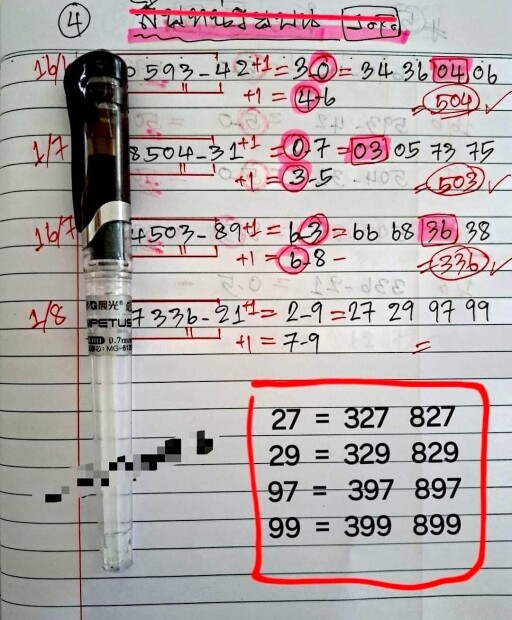 ④
16/
0593-42+1=3 0=34 36 04 06
+1=4-6 =504 ✓
1/7
8504-31+1=0.7=03 05 73 75
+1=3-5 =503 ✓
16/7
4503-89+1=63=66 68 36 38
+1=6-8- =336 ✓
1/8
7336-21+1=2-9=27 29 97 99
+1=7-9 =
晨光®
MPETUS
0.7mm
27 = 327 827
29 = 329 829
97 = 397 897
99 = 399 899